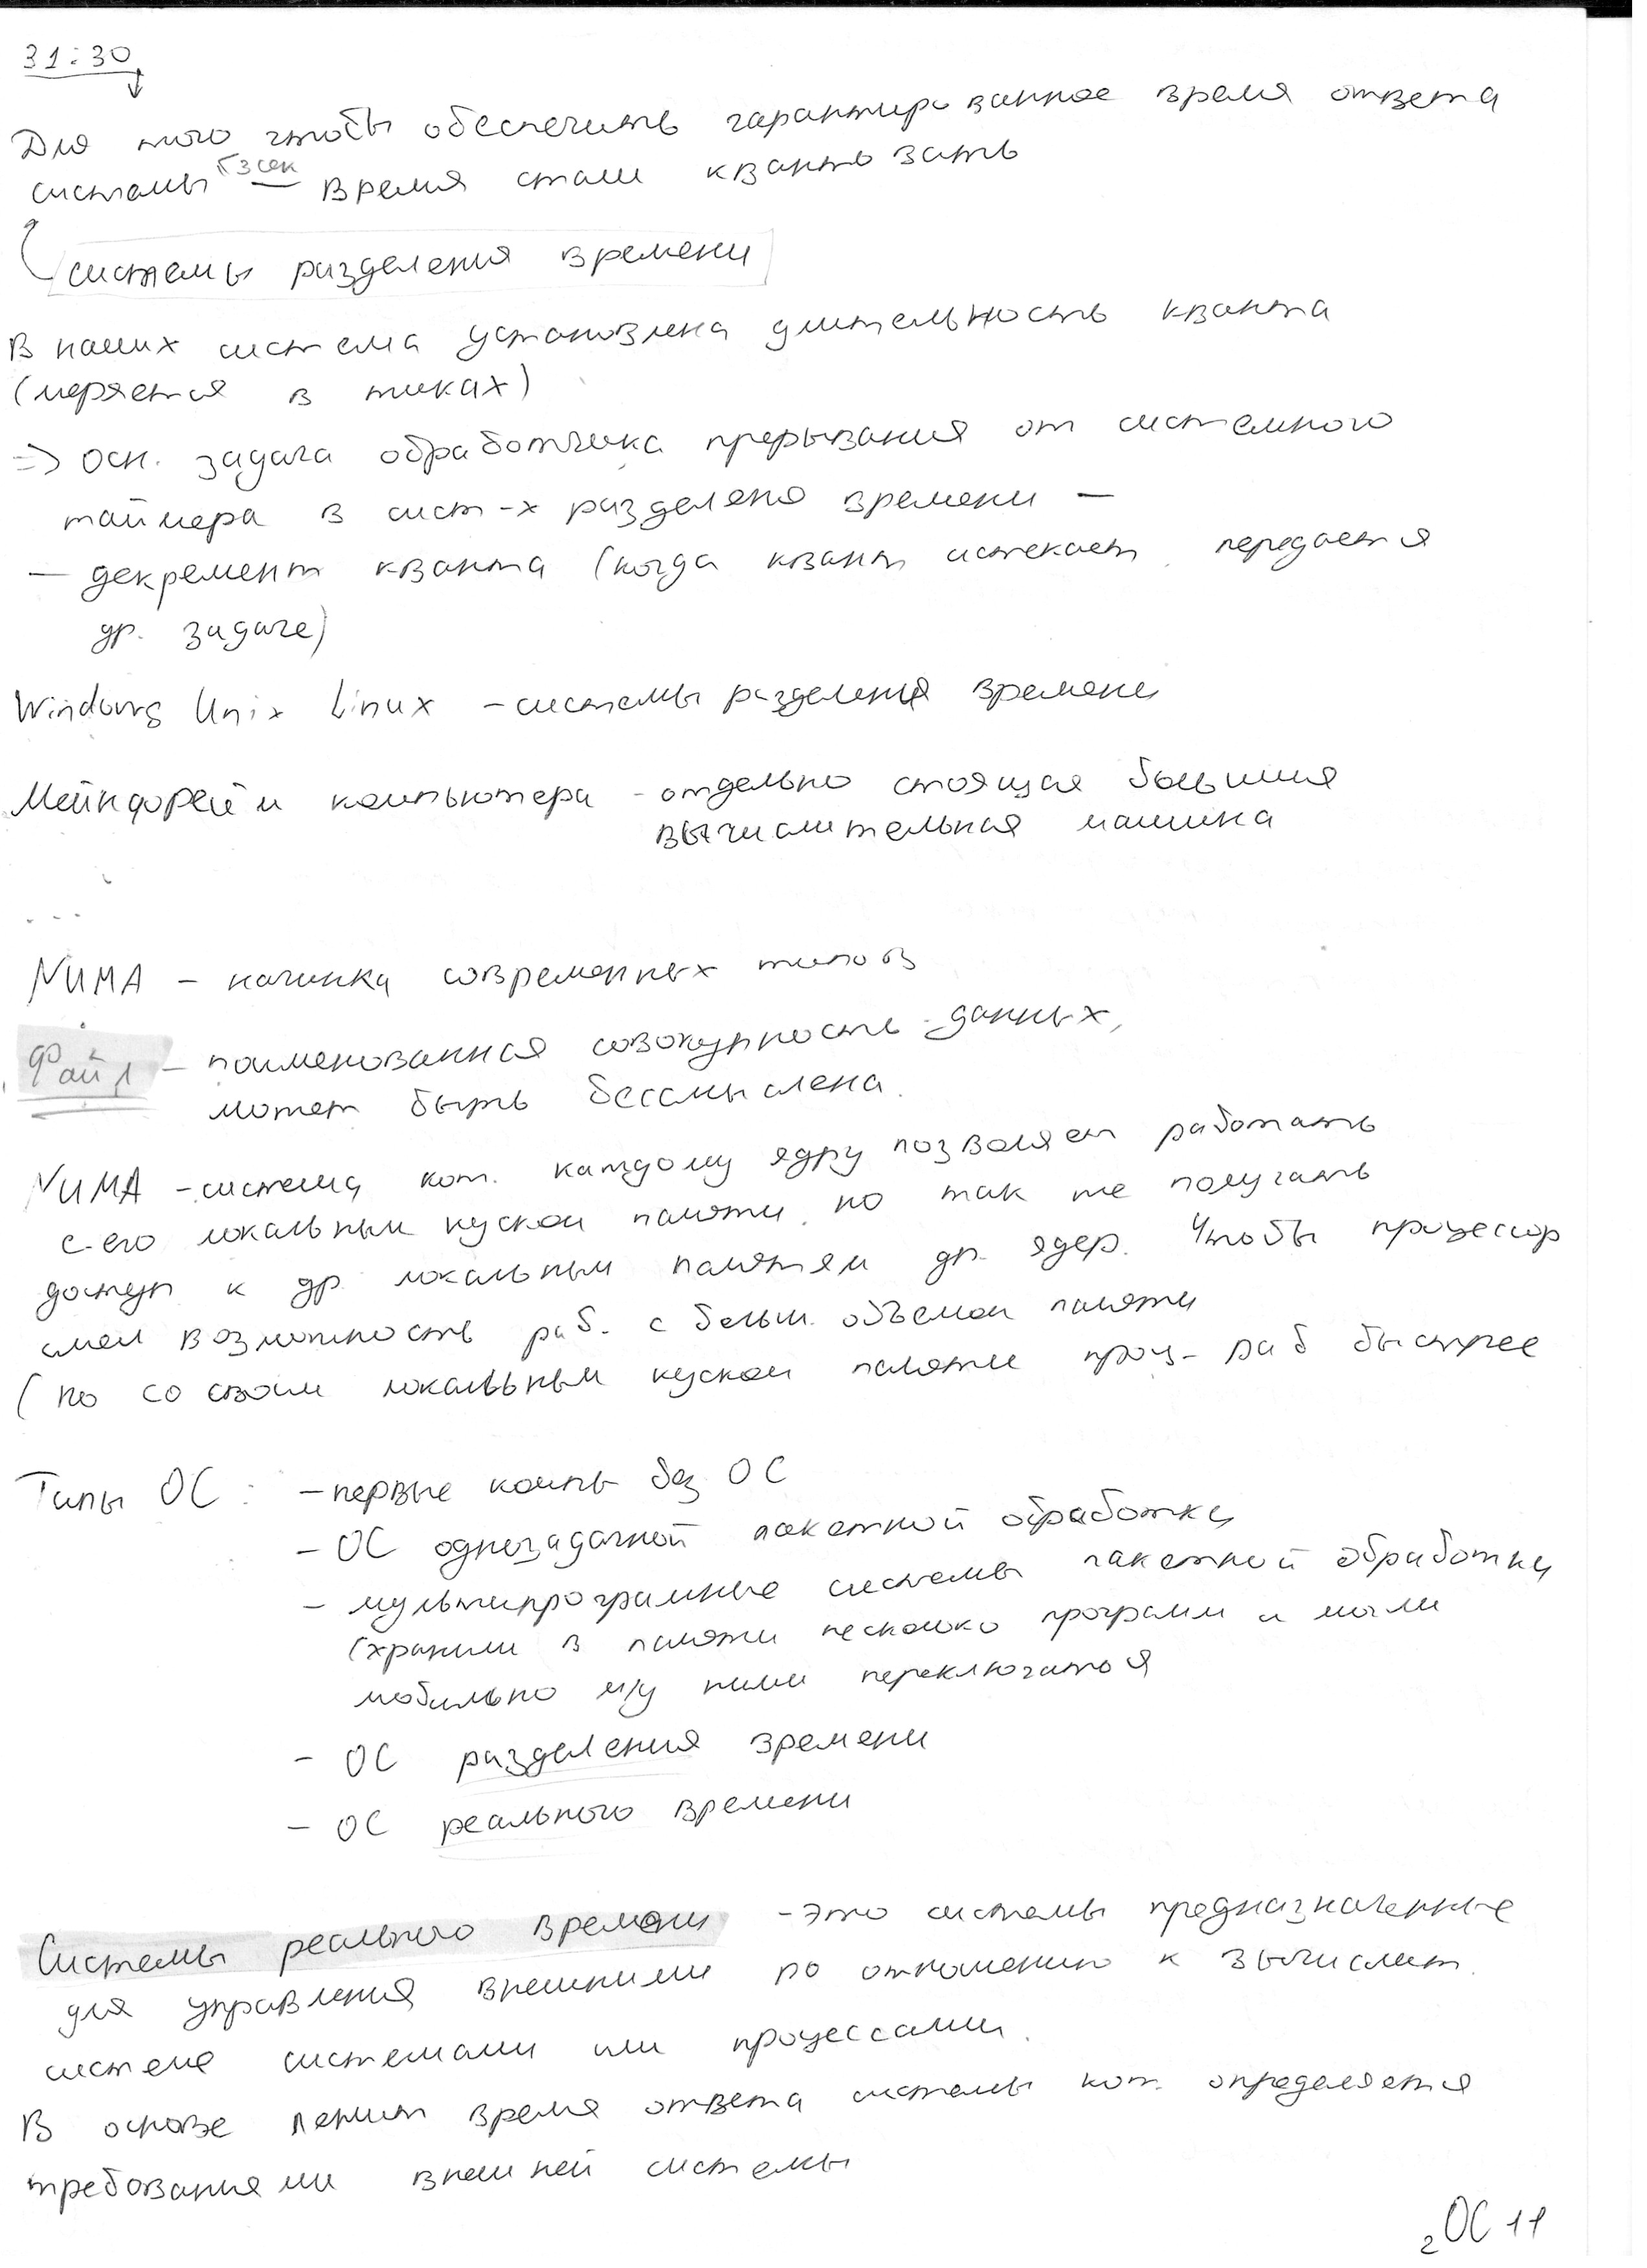 31:30
Для того чтобы обеспечить гарантированное время ответа
3 сек
системы — время стали квантовать
системы разделения времени
В наших система установлена длительность кванта
(меряется в тиках)
=> осн. задача обработчика прерывания от системного
таймера в сист-х разделено времени —
— декремент кванта (когда квант истекает, передается
др. задаче)
Windows Unix Linux - системы разделения времени
Мейнфрейм компьютера - отдельно стоящая большая
вычислительная машина
...
NUMA - начинка современных типов
Файл - поименованная совокупность данных,
может быть бессмыслена.
NUMA - система, кот. каждому ядру позволяет работать
с его локальным куском памяти, но так же получать
доступ к др. локальным памятям др. ядер. Чтобы процессор
имел возможность раб. с больш. объемом памяти
(но со своим локальным куском памяти проц- раб быстрее
Типы ОС: - первые компы без ОС
- ОС однозадачной пакетной обработки
- мультипрограмные системы пакетной обработки
(хранили в памяти несколько программ и могли
мобильно м/у ними переключаться
- ОС разделения времени
- ОС реального времени
Системы реального времени - это системы предназначенные
для управления внешними по отношению к вычислит.
системе системами или процессами.
В основе лежит время ответа системы кот. определяется
требованиями внешней системы
2 ОС 11